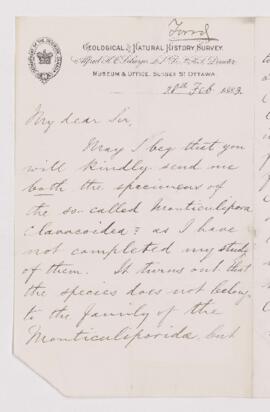 Foord
GEOLOGICAL & NATURAL HISTORY SURVEY
Alfred R. C. Selwyn, LL.D., F.R.S., Director
MUSEUM & OFFICE, SUSSEX ST OTTAWA
Feb 1883.
My dear Sir,
May I beg that you
will kindly send me
both the specimens of
the so-called Monticulipora
clavacoidea? as I have
not completed my study
of them. It turns out that
the species does not belong
to the family of the
Monticuliporidæ, but